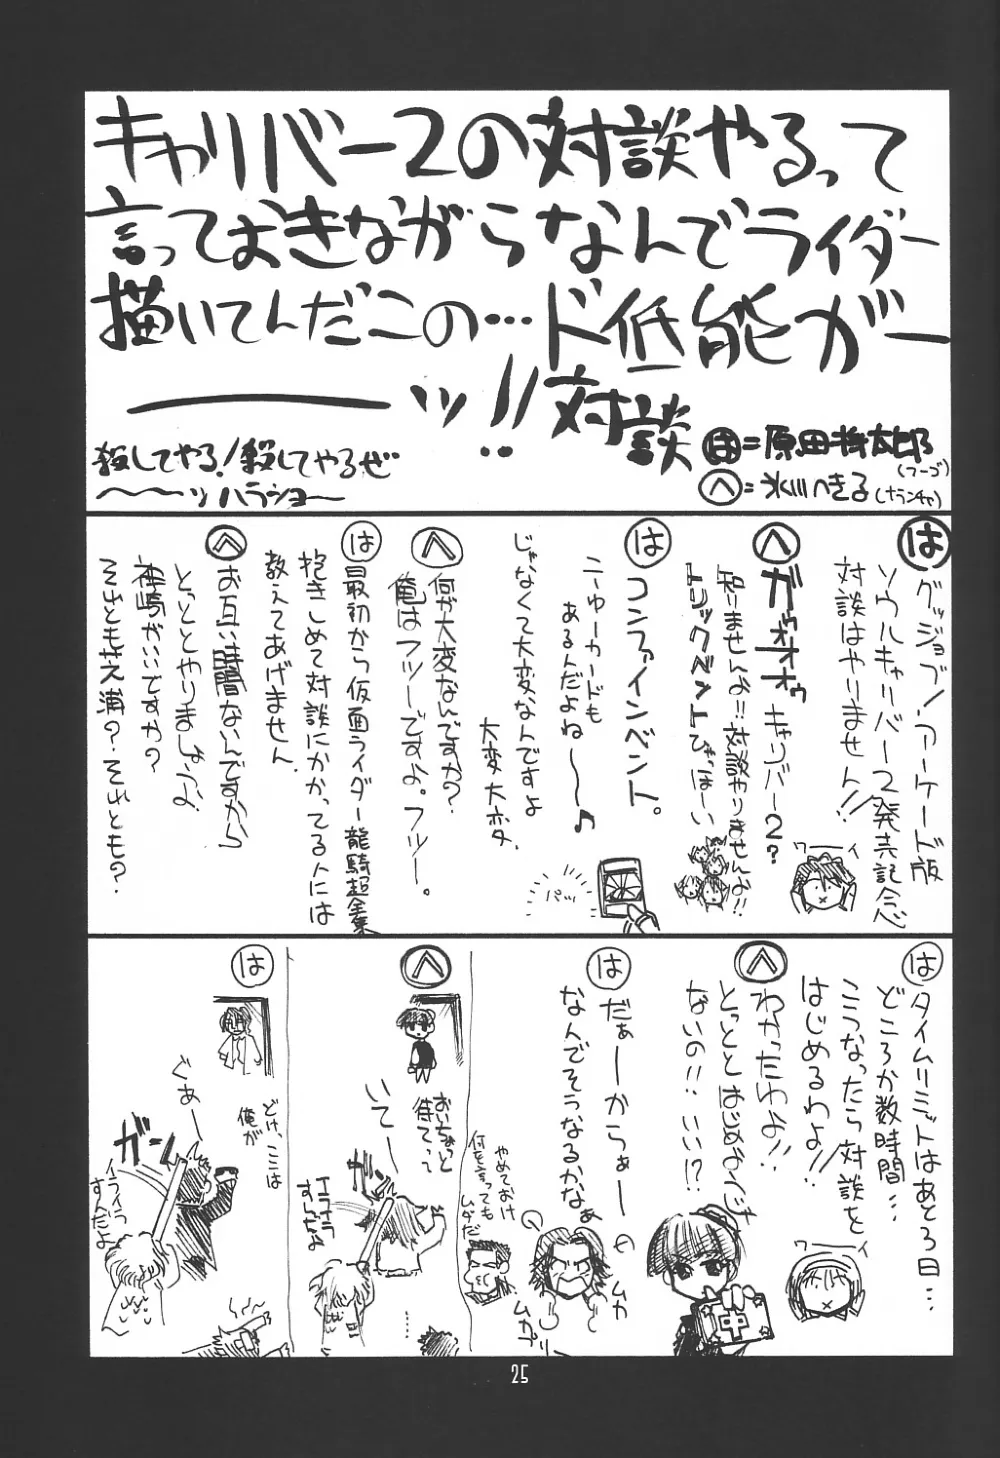 キャリバー2の対談やるって
言っておきながらなんでライダー
描いてんだこの…ド低能がー
ーーーッ!!対談
殺してやる!殺してやるぜ
〜〜〜ッハラショー
は=原田将太郎
(フーゴ)
へ=氷川へきる(ナランチャ)
は
グッジョブ!アーケード版
ソウルキャリバー2発売記念
対談はやりません!!
ワーイ
へ
ガゥオオオゥ
キャリバー2?
知りませんよ!!対談やりませんよ!!
トリックベントひゃっほーい
は
コンファインベント。
ニューカードも
あるんだよね〜〜♪
じゃなくて大変なんですよ
大変大変
パッ
へ
何が大変なんですか?
俺はフツーですよ。フツー。
は
最初から仮面ライダー龍騎超全集
抱きしめて対談にかかってる人には
教えてあげません
へ
お互い時間ないんですから
とっととやりましょうよ
神崎がいいですか?
それとも芝浦?それとも?
は
タイムリミットはあと3日…
どころか数時間…
こうなったら対談を
はじめるわよ!!
ワーイ
へ
わかったわよ!!
とっととはじめよイイんじゃ
ないの!!いい!?
中
は
だぁーからぁー
なんでそうなるかなぁ
ムカ
ムカッ
やめておけ
何を言っても
ムダだ
へ
おいちょっと
待てって
いてー
ガーン
イライラ
すんだよ
は
どけ、ここは
俺が
ぐぁー
ガーン
イライラ
すんだよ
25